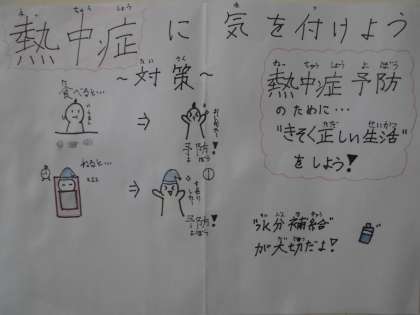 熱中症に気を付けよう
～対策～
食べると…
⇒
予防!
ねると…
zzz
⇒
①
予防!
熱中症予防
のために…
"きそく正しい生活"
をしよう!
"水分補給"
が大切だよ!